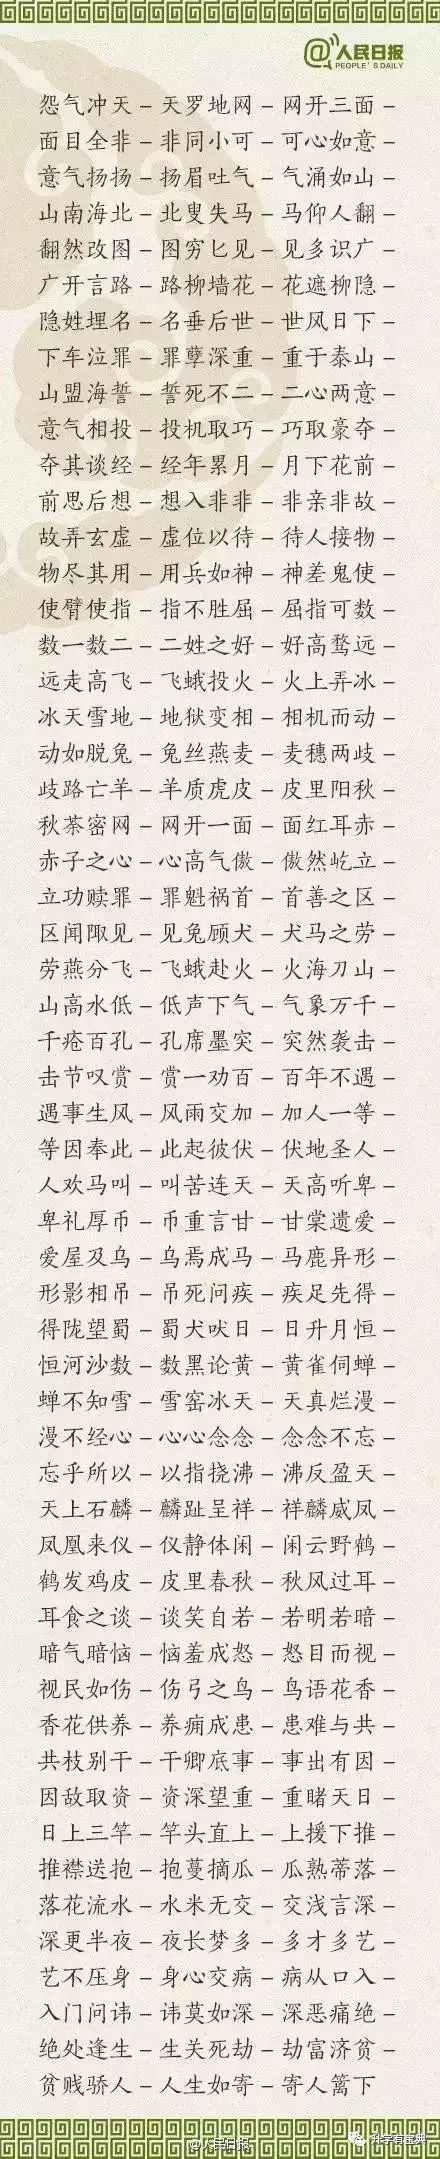 @人民日报
PEOPLE'S DAILY
怨气冲天－天罗地网－网开三面－
面目全非－非同小可－可心如意－
意气扬扬－扬眉吐气－气涌如山－
山南海北－北叟失马－马仰人翻－
翻然改图－图穷匕见－见多识广－
广开言路－路柳墙花－花遮柳隐－
隐姓埋名－名垂后世－世风日下－
下车泣罪－罪孽深重－重于泰山－
山盟海誓－誓死不二－二心两意－
意气相投－投机取巧－巧取豪夺－
夺其谈经－经年累月－月下花前－
前思后想－想入非非－非亲非故－
故弄玄虚－虚位以待－待人接物－
物尽其用－用兵如神－神差鬼使－
使臂使指－指不胜屈－屈指可数－
数一数二－二姓之好－好高骛远－
远走高飞－飞蛾投火－火上弄冰－
冰天雪地－地狱变相－相机而动－
动如脱兔－兔丝燕麦－麦穗两歧－
歧路亡羊－羊质虎皮－皮里阳秋－
秋荼密网－网开一面－面红耳赤－
赤子之心－心高气傲－傲然屹立－
立功赎罪－罪魁祸首－首善之区－
区闻陬见－见兔顾犬－犬马之劳－
劳燕分飞－飞蛾赴火－火海刀山－
山高水低－低声下气－气象万千－
千疮百孔－孔席墨突－突然袭击－
击节叹赏－赏一劝百－百年不遇－
遇事生风－风雨交加－加人一等－
等因奉此－此起彼伏－伏地圣人－
人欢马叫－叫苦连天－天高听卑－
卑礼厚币－币重言甘－甘棠遗爱－
爱屋及乌－乌焉成马－马鹿异形－
形影相吊－吊死问疾－疾足先得－
得陇望蜀－蜀犬吠日－日升月恒－
恒河沙数－数黑论黄－黄雀伺蝉－
蝉不知雪－雪窑冰天－天真烂漫－
漫不经心－心心念念－念念不忘－
忘乎所以－以指挠沸－沸反盈天－
天上石麟－麟趾呈祥－祥麟威凤－
凤凰来仪－仪静体闲－闲云野鹤－
鹤发鸡皮－皮里春秋－秋风过耳－
耳食之谈－谈笑自若－若明若暗－
暗气暗恼－恼羞成怒－怒目而视－
视民如伤－伤弓之鸟－鸟语花香－
香花供养－养痈成患－患难与共－
共枝别干－干卿底事－事出有因－
因敌取资－资深望重－重睹天日－
日上三竿－竿头直上－上援下推－
推襟送抱－抱蔓摘瓜－瓜熟蒂落－
落花流水－水米无交－交浅言深－
深更半夜－夜长梦多－多才多艺－
艺不压身－身心交病－病从口入－
入门问讳－讳莫如深－深恶痛绝－
绝处逢生－生关死劫－劫富济贫－
贫贱骄人－人生如寄－寄人篱下
@人民日报
升学有宝典